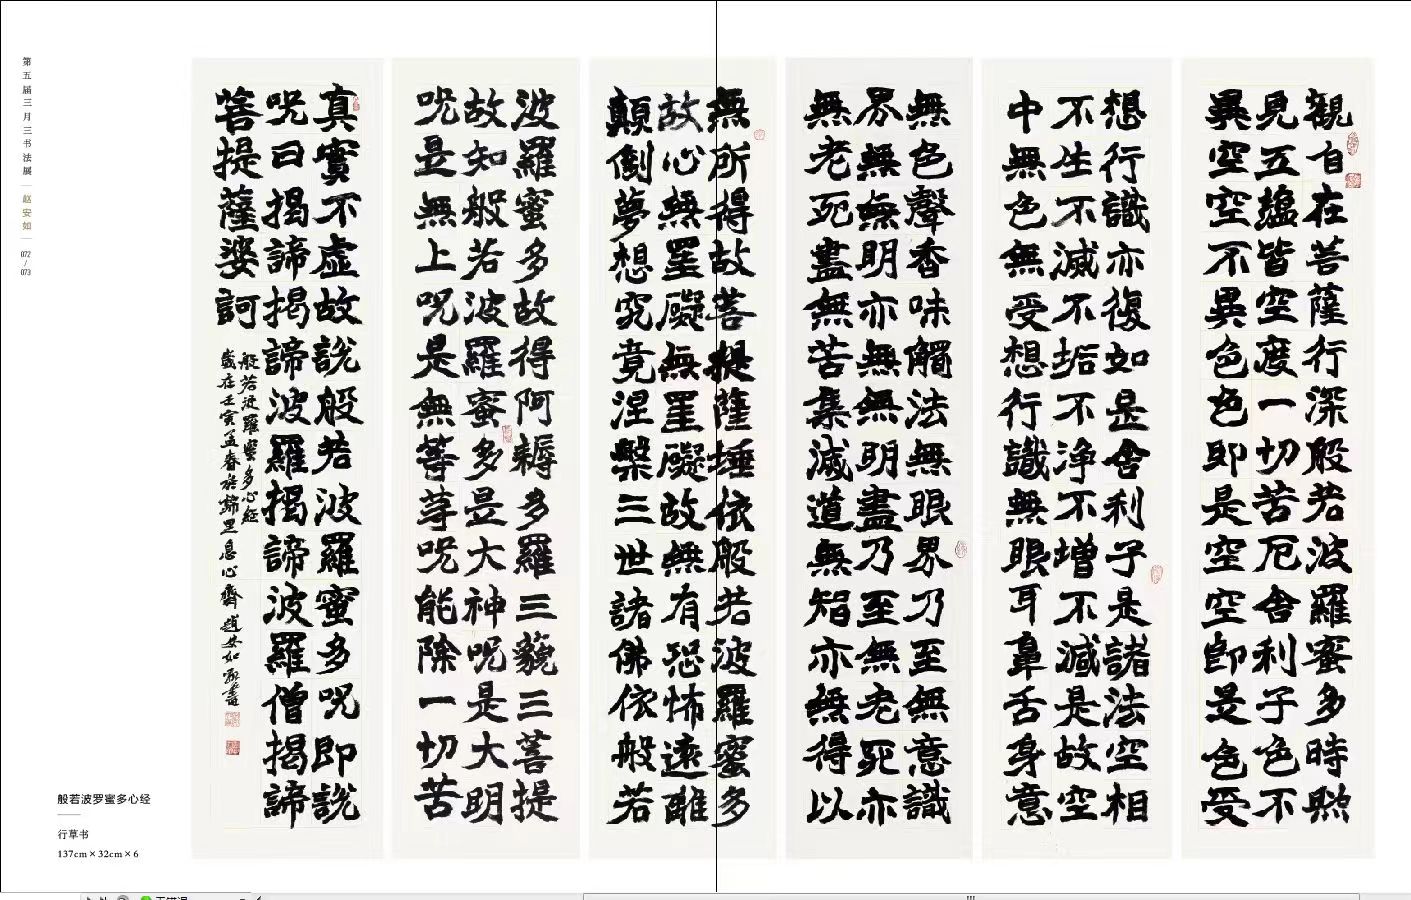 第五届三月三书法展
赵安如
072
/
073
觀自在菩薩行深般若波羅蜜多時照
見五蘊皆空度一切苦厄舍利子色不
異空空不異色色即是空空即是色受
想行識亦復如是舍利子是諸法空相
不生不滅不垢不淨不增不減是故空
中無色無受想行識無眼耳鼻舌身意
無色聲香味觸法無眼界乃至無意識
界無無明亦無無明盡乃至無老死亦
無老死盡無苦集滅道無智亦無得以
無所得故菩提薩埵依般若波羅蜜多
故心無罣礙無罣礙故無有恐怖遠離
顛倒夢想究竟涅槃三世諸佛依般若
波羅蜜多故得阿耨多羅三藐三菩提
故知般若波羅蜜多是大神呪是大明
呪是無上呪是無等等呪能除一切苦
真實不虛故說般若波羅蜜多呪即說
呪曰揭諦揭諦波羅揭諦波羅僧揭諦
菩提薩婆訶
般若波羅蜜多心經
歲在壬寅孟春於歸里息心齋趙安如書
般若波罗蜜多心经
行草书
137cm×32cm×6